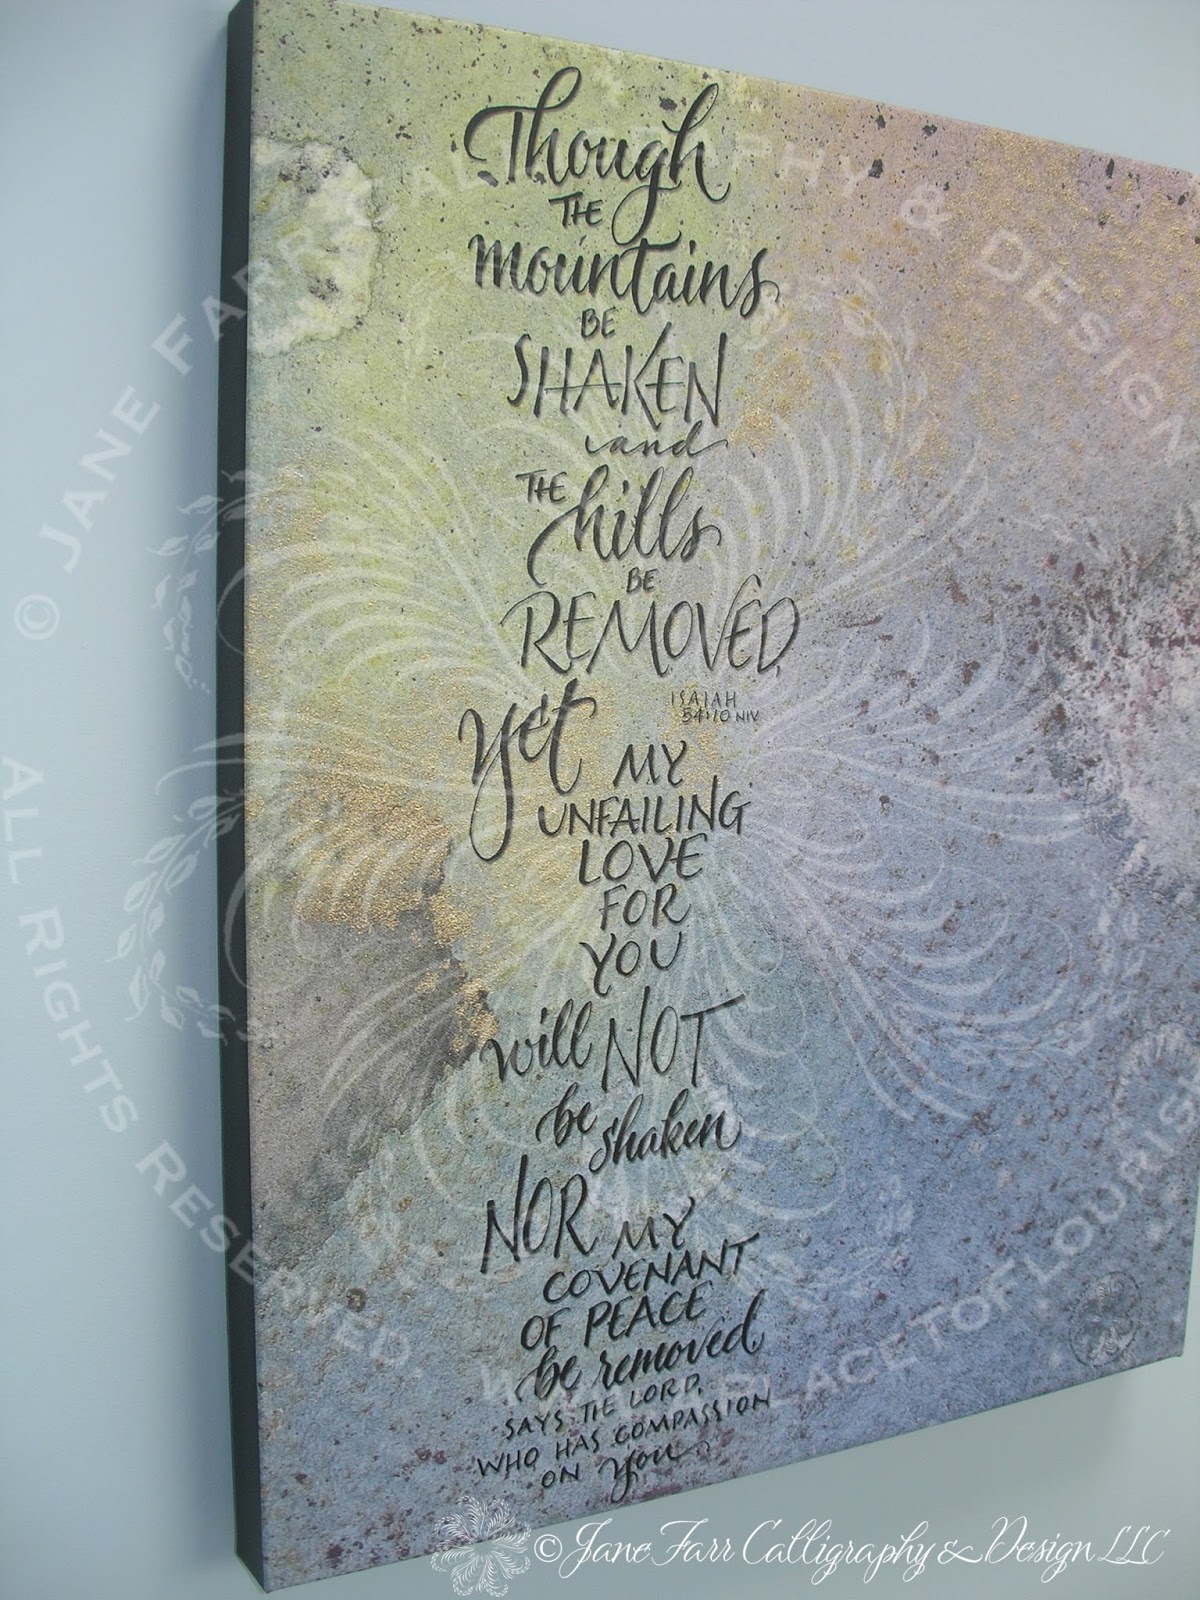 Though
THE
mountains
BE
SHAKEN
and
THE hills
BE
REMOVED,
ISAIAH
54:10 NIV
yet MY
UNFAILING
LOVE
FOR
YOU
will NOT
be shaken
NOR MY
COVENANT
OF PEACE
be removed,
SAYS THE LORD,
WHO HAS COMPASSION
ON you.
© JANE FARR CALLIGRAPHY & DESIGN
ALL RIGHTS RESERVED.
© Jane Farr Calligraphy & Design LLC